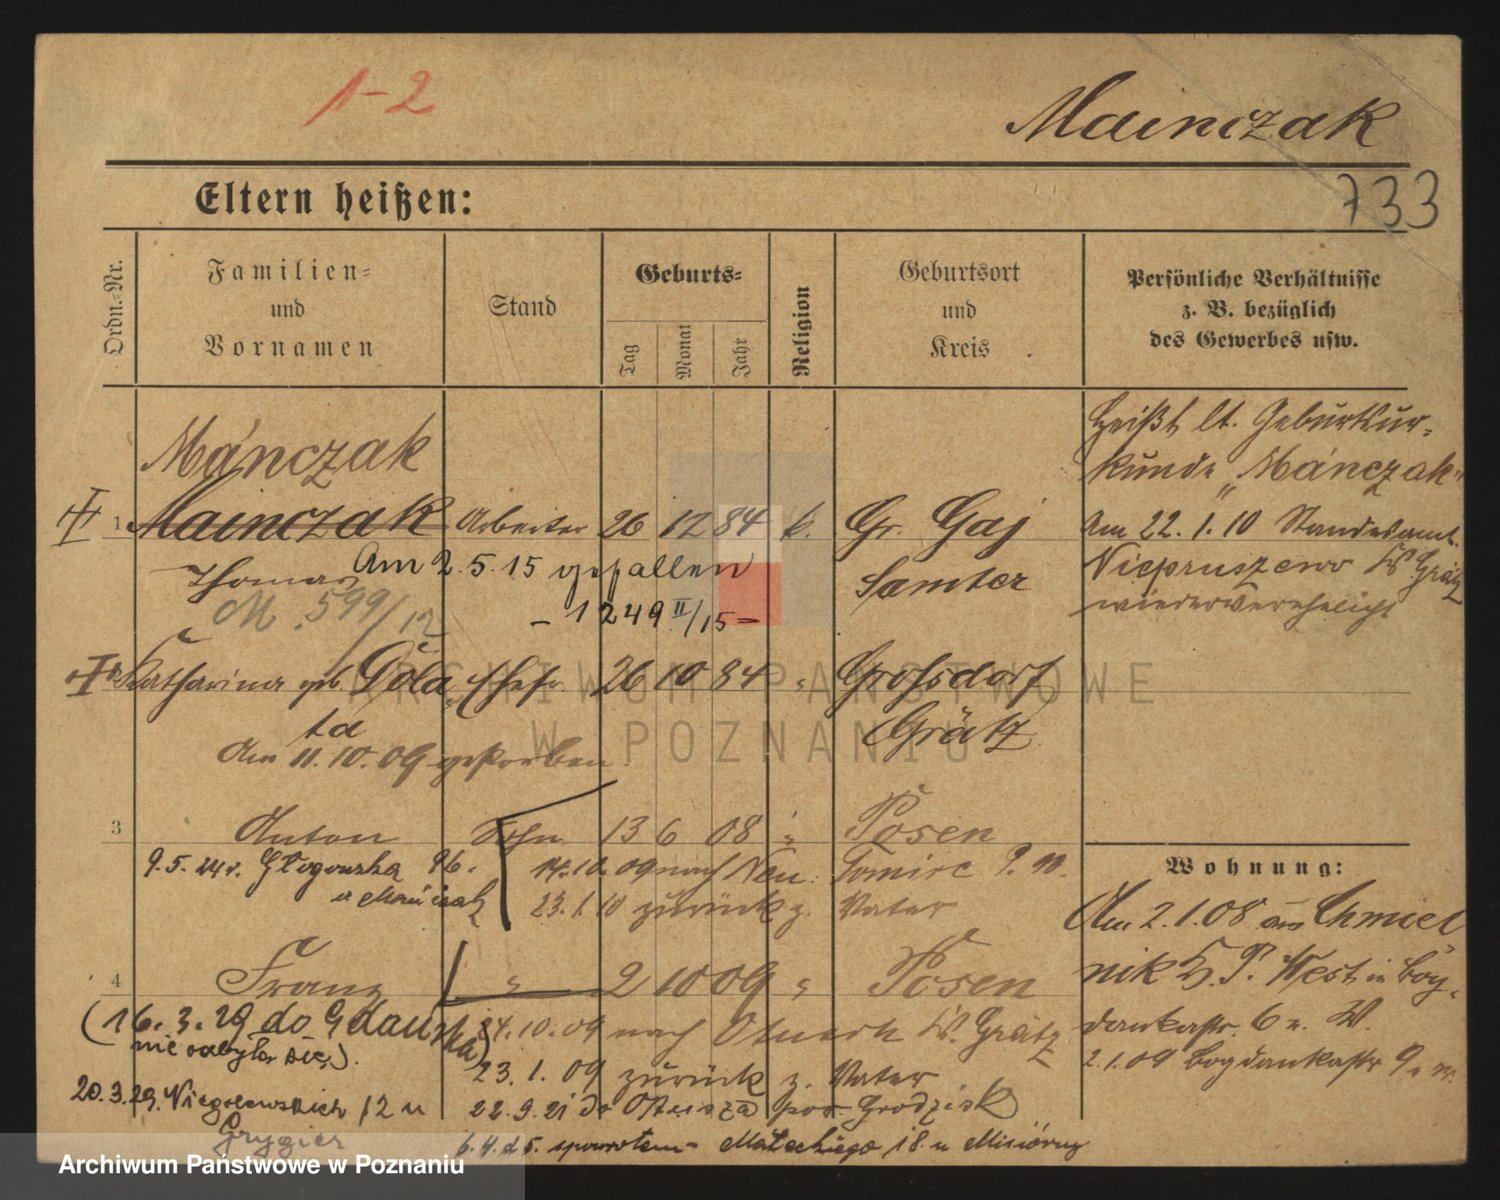 1-2
Mainczak
733
Eltern heißen:
Ordn.-Nr.
Familien-
und
Vornamen
Stand
Geburts-
Tag
Monat
Jahr
Religion
Geburtsort
und
Kreis
Persönliche Verhältnisse
z. B. bezüglich
des Gewerbes usw.
Mańczak
1 Mainczak Arbeiter 26 12 84 k. Gr. Gaj
Thomas Samter
Am 2.5.15 gefallen
M. 599/12
- 1249 II/15 -
Katharina geb. Dola Ehefr. 26 10 84 " Großdorf
Grätz
Am 11.10.09 gestorben
3 Anton Sohn 13 6 08 " Posen
9.5.24 v. Głogowska 96.
14.10.09 nach Neu Tomisc
23.1.10 zurück z. Vater
4 Franz " 2 10 09 " Posen
(16.3.29 do Gdańska
nie odbyło się).
14.10.09 nach W. Grätz
23.1.09 zurück z. Vater
20.3.29. Niegolewskich 12 u
Grygier
22.9.21 do pow. Grodzisk
6.4.25. spowrotem - Małeckiego 18. u
Heißt lt. Geburtsur-
kunde „Mańczak"
Am 22.1.10 Standesamt
Niepruszewo K. Grätz
wiederverehelicht
Wohnung:
Am 2.1.08 aus Chmiel
nik K. P. West in Bog-
dankastr. 6 v. W.
2.1.09 Bogdankastr 9
ARCHIWUM PAŃSTWOWE
W POZNANIU
Archiwum Państwowe w Poznaniu